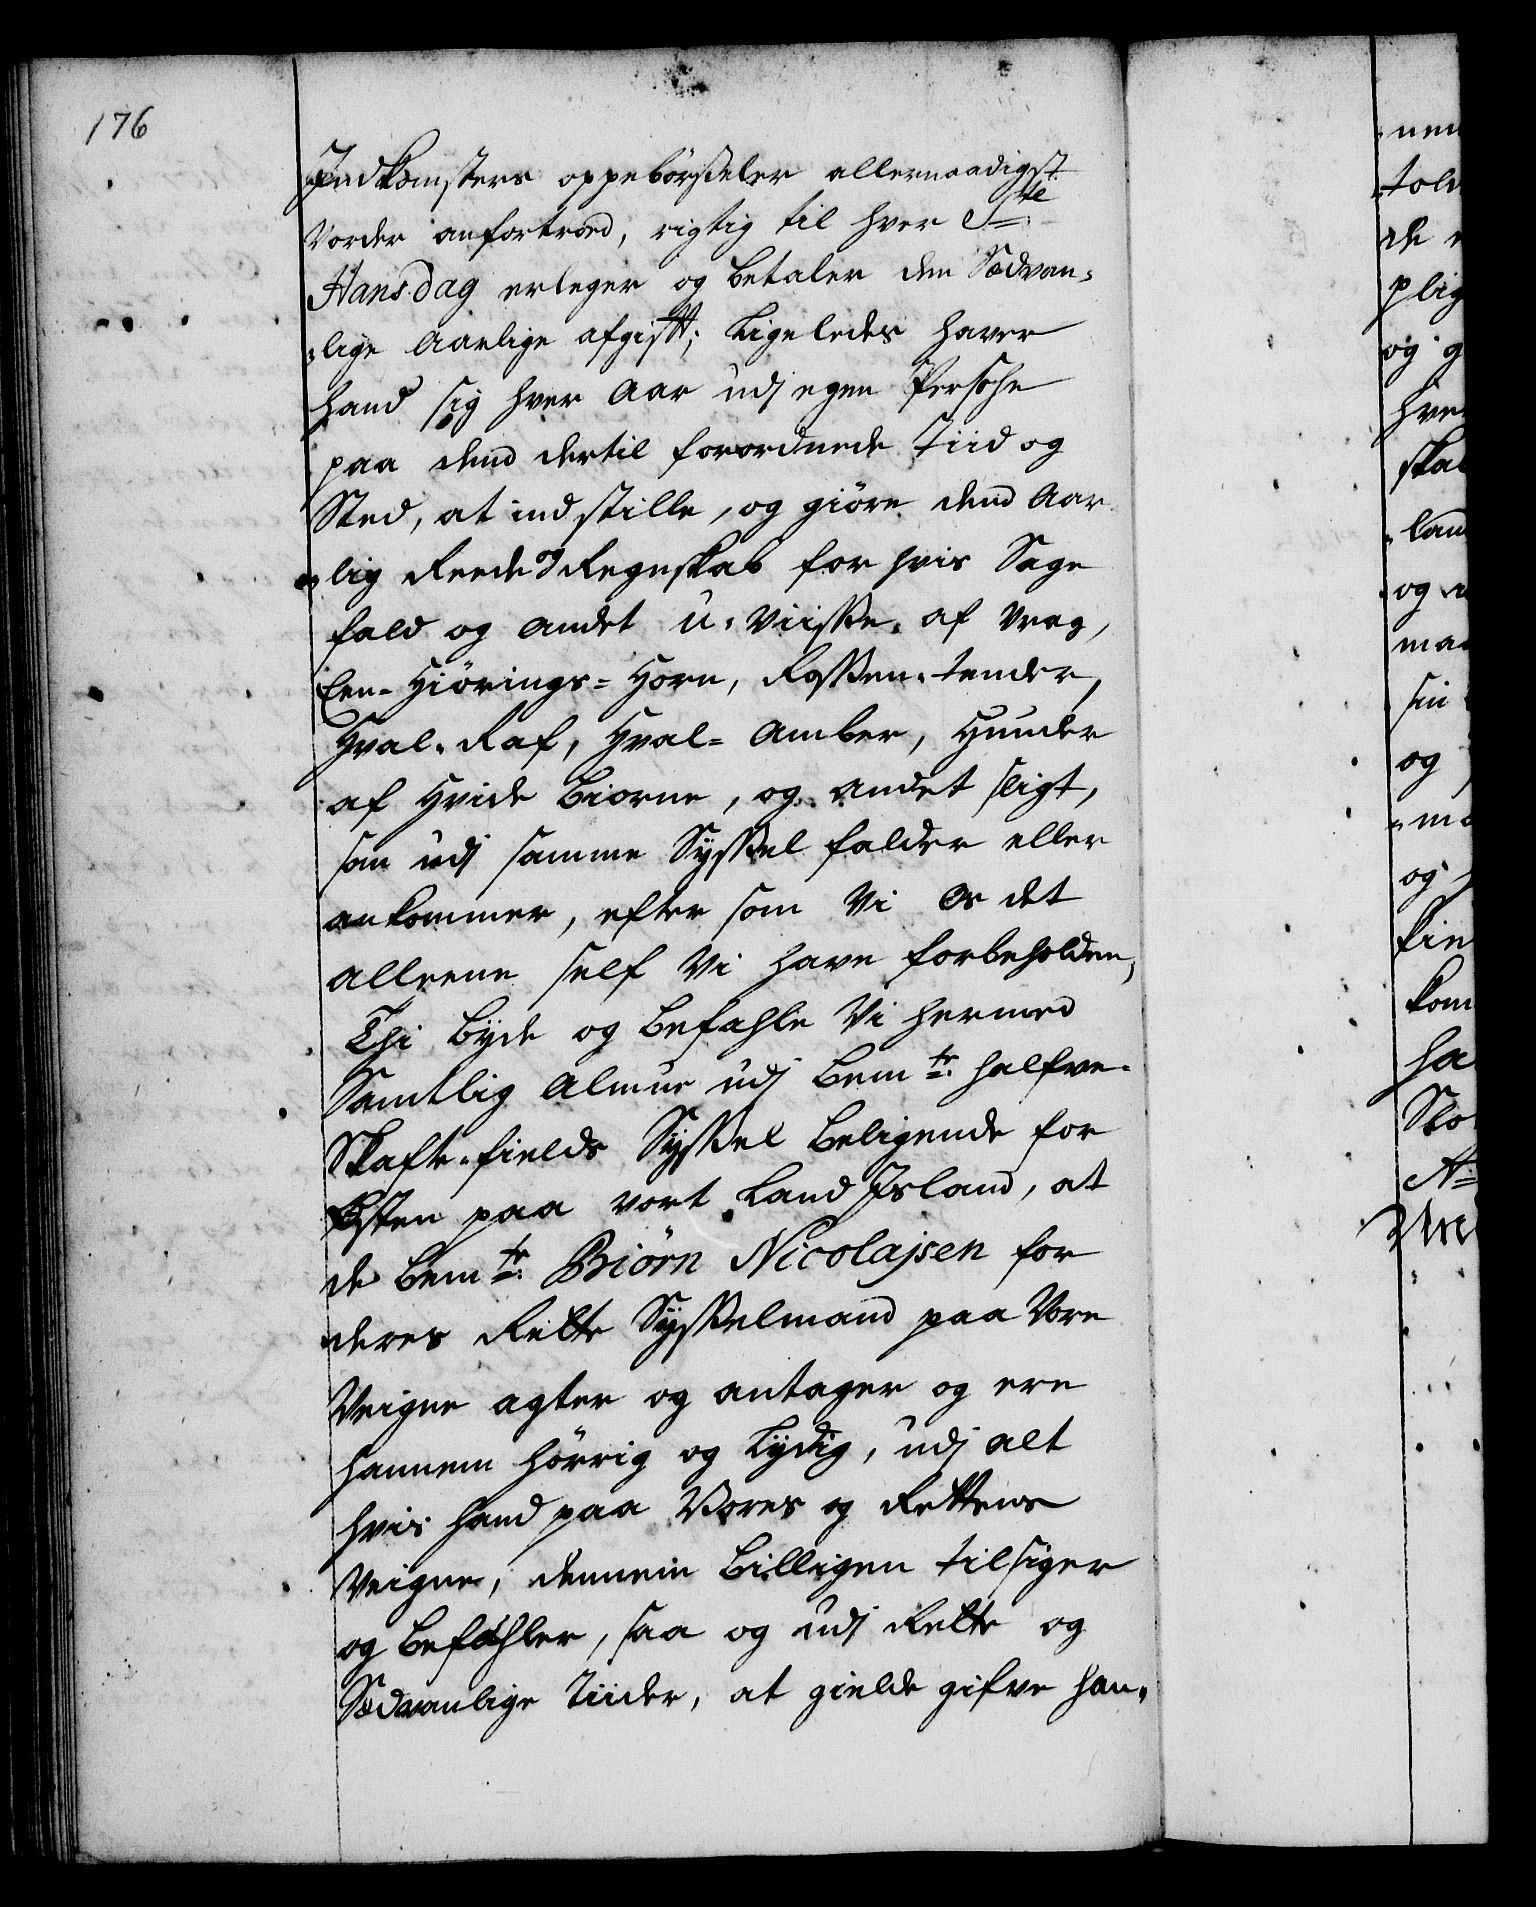 176
Indkomsters oppebørsseler allernaadigst
Vorder anfortroed, rigtig til hver Ste
Hans dag erleger og betaler den Sædvan-
lige Aarlige afgifft; Ligeledes haver
hand sig hver Aar udj egen Persohn
paa dend dertil forordnede Tiid og
Sted, at indstille, og giøre dend Aar-
lig Reede Regnskab for hvis Sage
fald og Andet u-Viisse, af Vrag,
Een-Hiørings-Horn, Rossen-tender,
Hval-Raf, Hval-Amber, Huuder
af Hvide Biørne, og andet sligt,
som udj samme Syssel falder eller
ankommer, efter som Vi Os det
alleene self Vi have forbeholden,
Thi byde og befahle Vi hermed
Samtlig Almue udj bemte halfve-
Skafte-fields Syssel beligende for
Østen paa vort Land Jsland, at
de bemte Biörn Nicolajsen for
deres Rette Sysselmand paa Vore
Veigne agter og antager og ere
hannem hørrig og Lydig, udj alt
hvis hand paa Vores og Rettens
Veigne, dennem billigen tilsiger
og befahler, saa og udj Rette og
Sædvanlige Tiider, at gielde gifve han-
nem
told
de
plig
og g
hve
skal
land
og
maa
sin
og
ma
og
kien
kom
ha
Slo
A